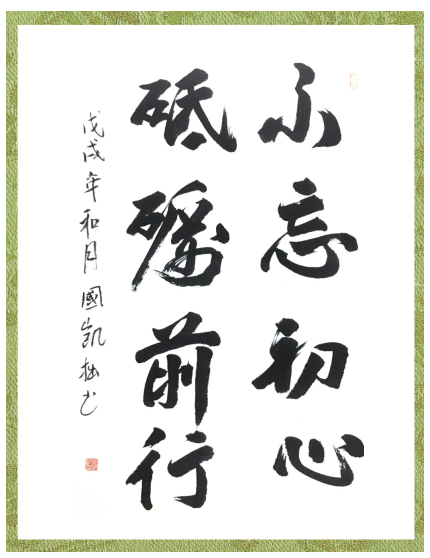 不忘初心
砥礪前行
戊戌年和月國凱拙书